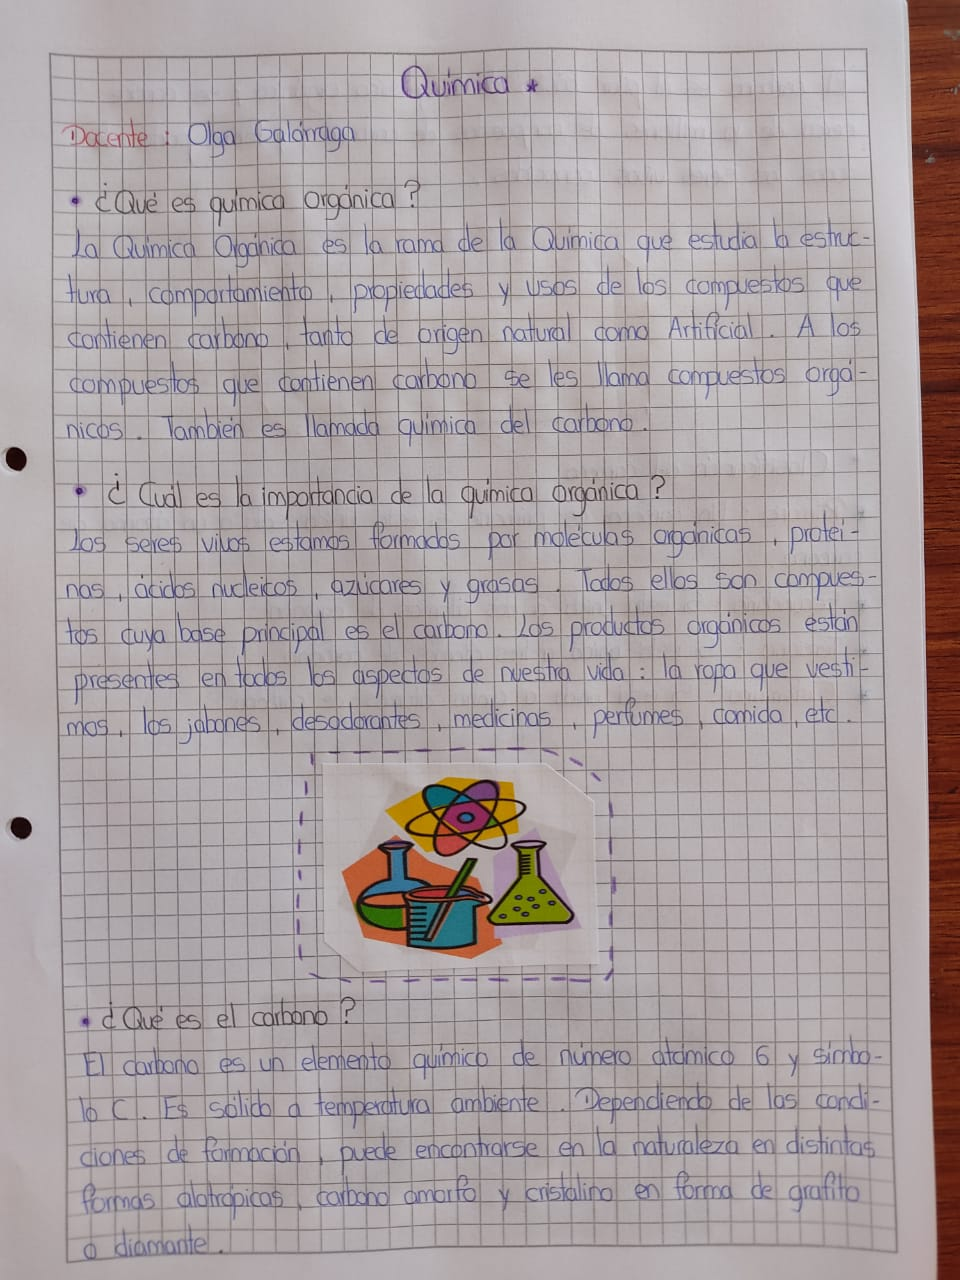 Química *
Docente: Olga Galárraga
• ¿Qué es química orgánica?
La Química Orgánica es la rama de la Química que estudia la estruc-
tura, comportamiento, propiedades y usos de los compuestos que
contienen carbono, tanto de origen natural como Artificial. A los
compuestos que contienen carbono se les llama compuestos orgá-
nicos. También es llamada química del carbono.
• ¿Cuál es la importancia de la química orgánica?
Los seres vivos estamos formados por moléculas orgánicas, protei-
nas, ácidos nucleicos, azúcares y grasas. Todos ellos son compues-
tos cuya base principal es el carbono. Los productos orgánicos están
presentes en todos los aspectos de nuestra vida: la ropa que vesti-
mos, los jabones, desodorantes, medicinas, perfumes, comida, etc.
• ¿Qué es el carbono?
El carbono es un elemento químico de número atómico 6 y símbo-
lo C. Es sólido a temperatura ambiente. Dependiendo de las condi-
ciones de formación, puede encontrarse en la naturaleza en distintas
formas alotrópicas, carbono amorfo y cristalino en forma de grafito
o diamante.